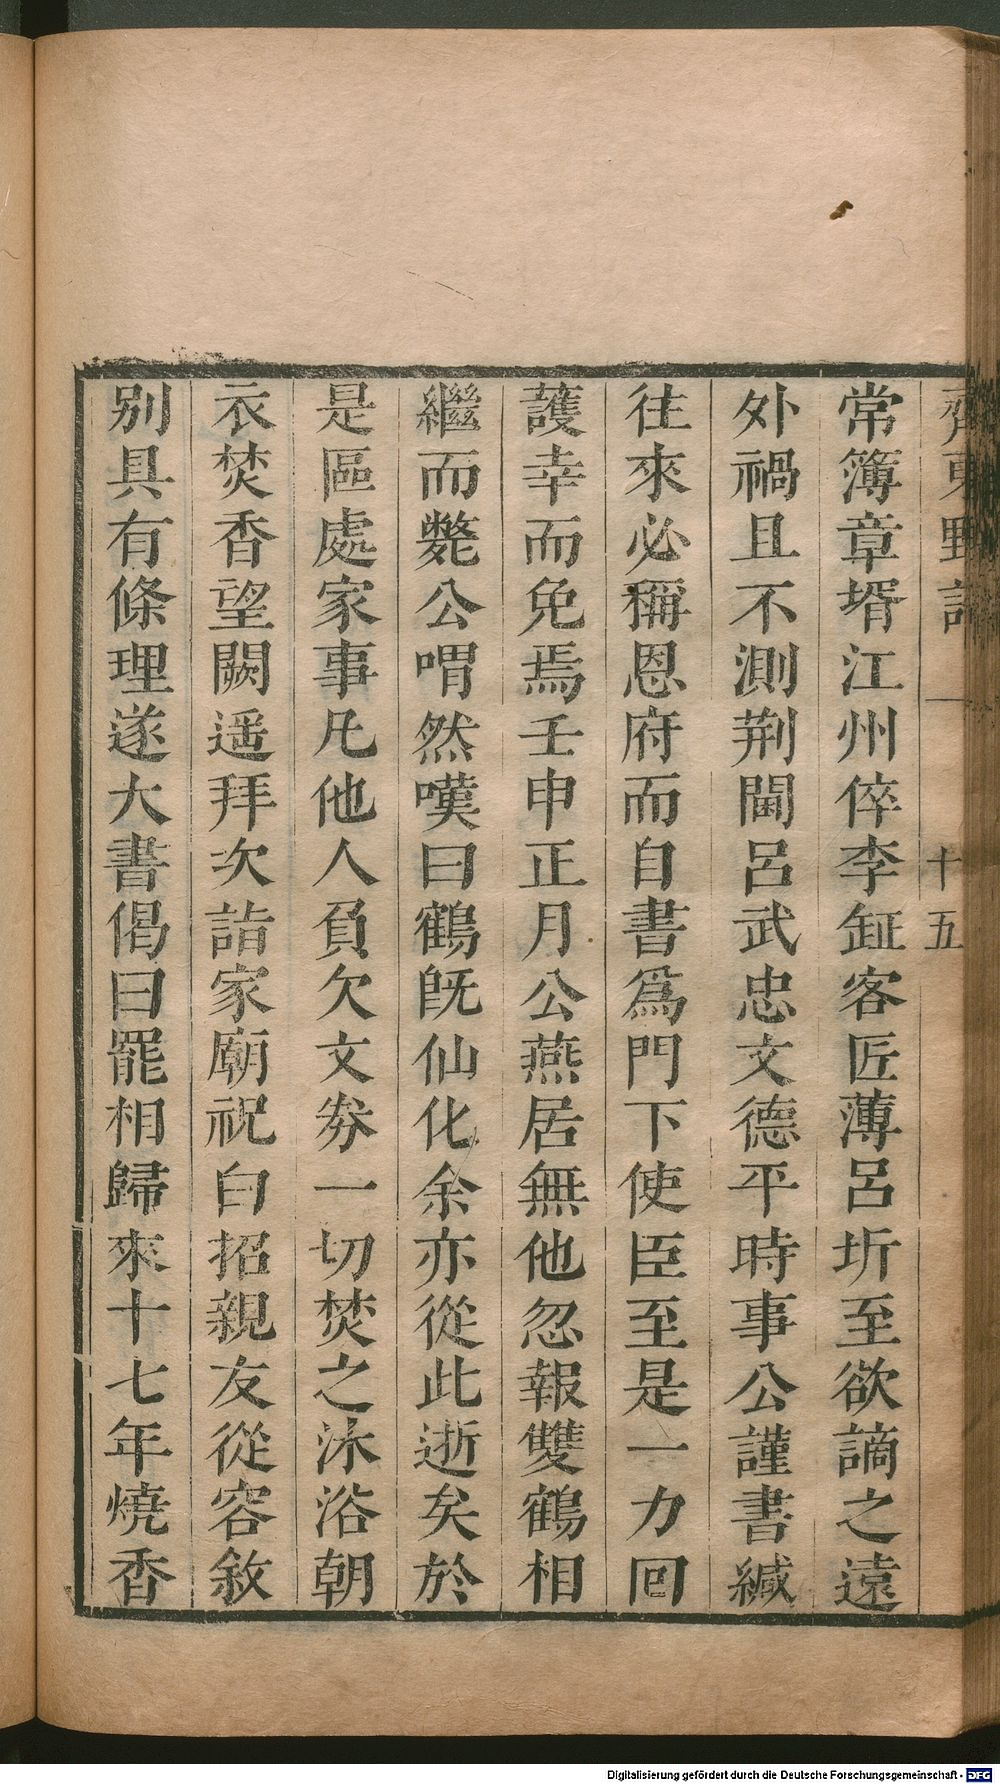 齊東野語
一
十五
常簿章壻江州倅李鉦客匠薄呂圻至欲謫之遠
外禍且不測荆閫呂武忠文德平時事公謹書緘
往來必稱恩府而自書爲門下使臣至是一力回
護幸而免焉壬申正月公燕居無他忽報雙鶴相
繼而斃公喟然嘆曰鶴旣仙化余亦從此逝矣於
是區處家事凡他人負欠文劵一切焚之沐浴朝
衣焚香望闕遥拜次詣家廟祝白招親友從容敘
别具有條理遂大書偈曰罷相歸來十七年燒香
Digitalisierung gefördert durch die Deutsche Forschungsgemeinschaft - DFG